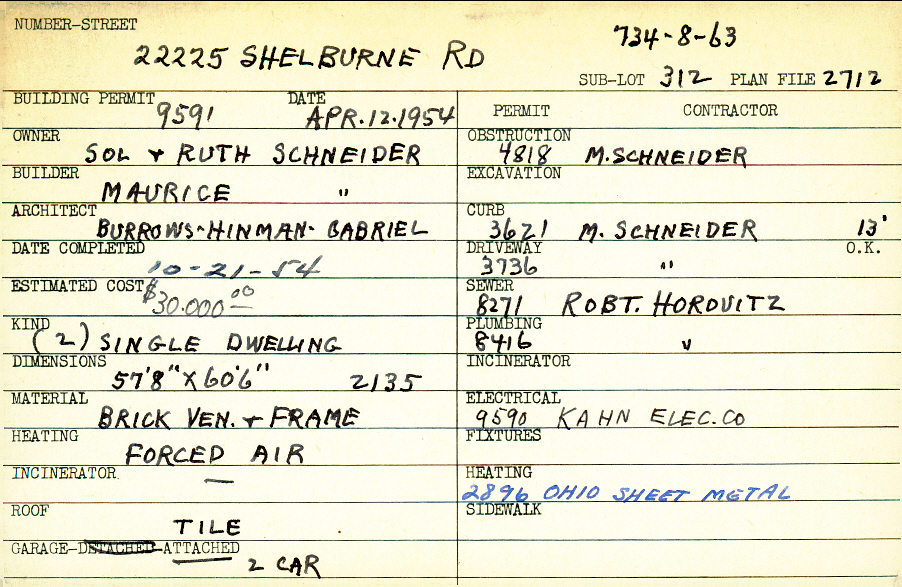 NUMBER-STREET
734-8-63
22225 SHELBURNE RD
SUB-LOT 312 PLAN FILE 2712
BUILDING PERMIT DATE
9591 APR.12.1954
PERMIT CONTRACTOR
OWNER
SOL & RUTH SCHNEIDER
OBSTRUCTION
4818 M.SCHNEIDER
BUILDER
MAURICE "
EXCAVATION
ARCHITECT
BURROWS-HINMAN-GABRIEL
CURB
3621 M. SCHNEIDER 13'
DATE COMPLETED
10-21-54
DRIVEWAY O.K.
3736 "
ESTIMATED COST
$30.000.00
SEWER
8271 ROBT. HOROVITZ
KIND
(2) SINGLE DWELLING
PLUMBING
8416 "
DIMENSIONS
57'8" X 60'6" 2135
INCINERATOR
MATERIAL
BRICK VEN. & FRAME
ELECTRICAL
9590 KAHN ELEC.CO
HEATING
FORCED AIR
FIXTURES
INCINERATOR
—
HEATING
2896 OHIO SHEET METAL
ROOF
TILE
SIDEWALK
GARAGE-DETACHED-ATTACHED
2 CAR